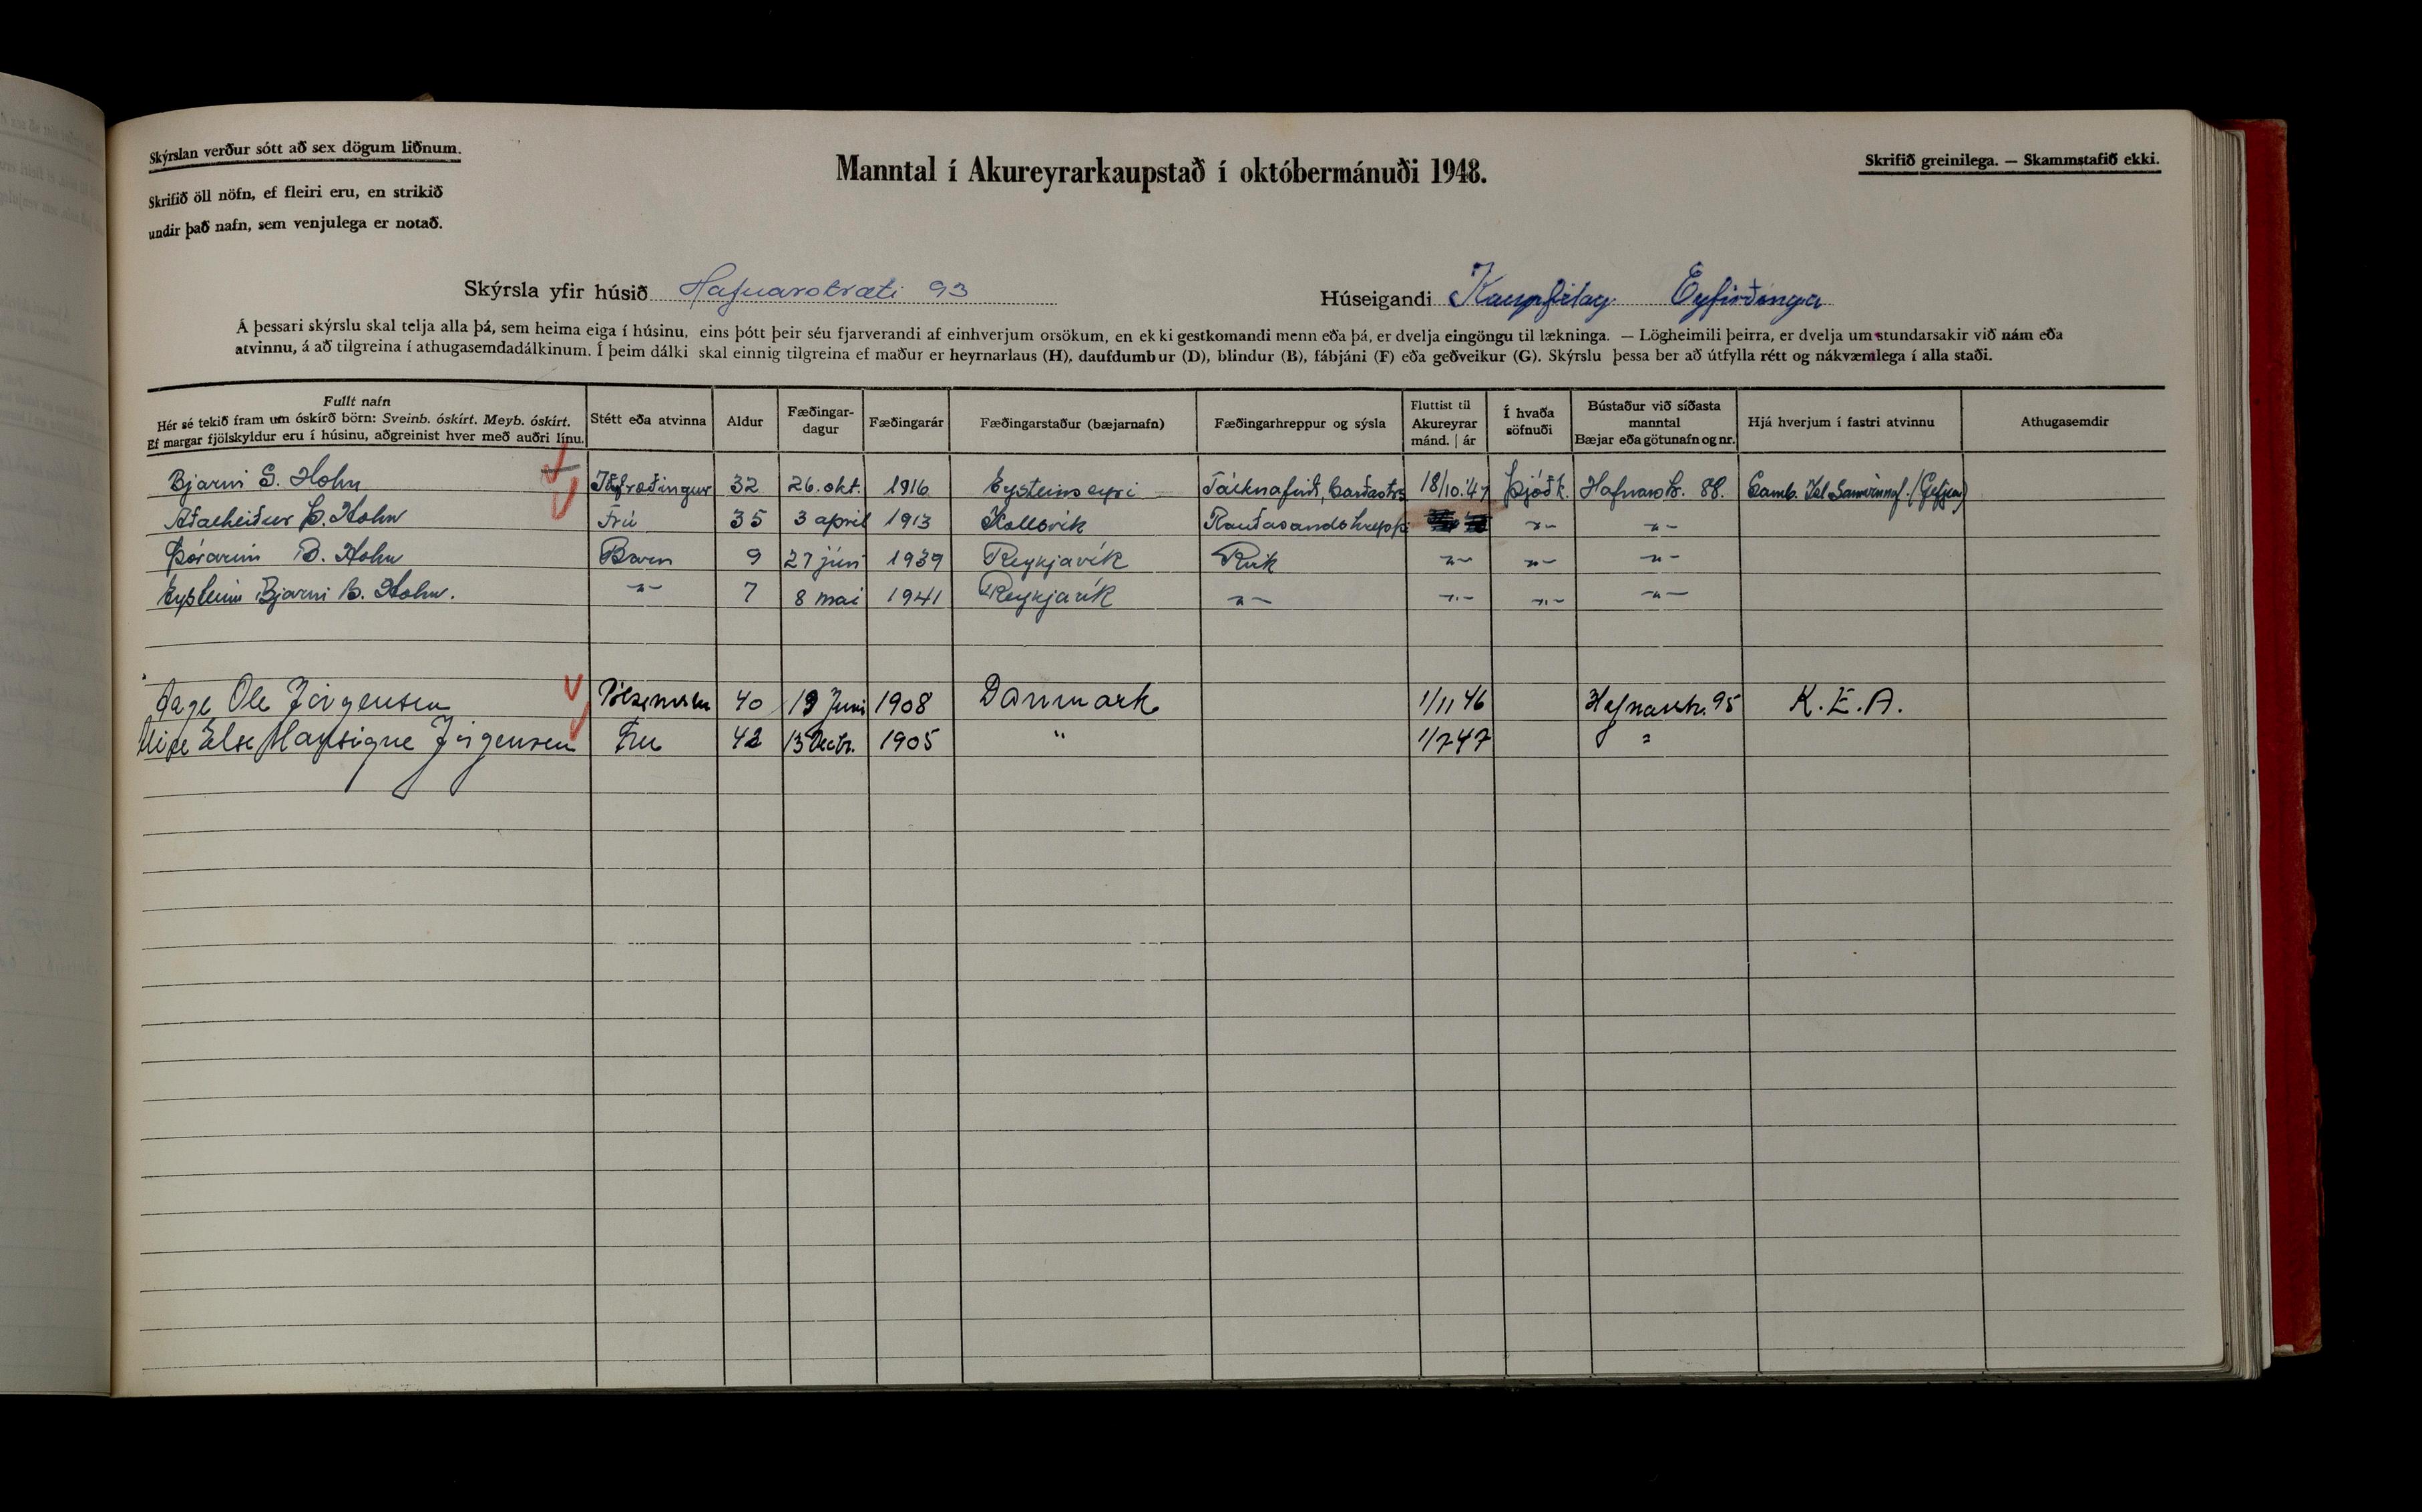 Skýrslan verður sótt að sex dögum liðnum.
Skrifið öll nöfn, ef fleiri eru, en strikið
undir það nafn, sem venjulega er notað.
Manntal í Akureyrarkaupstað í októbermánuði 1948.
Skrifið greinilega. — Skammstafið ekki.
Skýrsla yfir húsið Hafnarstræti 93
Húseigandi Kaupfélag Eyfirðinga
Á þessari skýrslu skal telja alla þá, sem heima eiga í húsinu, eins þótt þeir séu fjarverandi af einhverjum orsökum, en ekki gestkomandi menn eða þá, er dvelja eingöngu til lækninga. — Lögheimili þeirra, er dvelja um stundarsakir við nám eða
atvinnu, á að tilgreina í athugasemdadálkinum. Í þeim dálki skal einnig tilgreina ef maður er heyrnarlaus (H), daufdumbur (D), blindur (B), fábjáni (F) eða geðveikur (G). Skýrslu þessa ber að útfylla rétt og nákvæmlega í alla staði.
Fullt nafn
Hér sé tekið fram um óskírð börn: Sveinb. óskírt. Meyb. óskírt.
Ef margar fjölskyldur eru í húsinu, aðgreinist hver með auðri línu.
Stétt eða atvinna
Aldur
Fæðingar-
dagur
Fæðingarár
Fæðingarstaður (bæjarnafn)
Fæðingarhreppur og sýsla
Fluttist til
Akureyrar
mánd. | ár
Í hvaða
söfnuði
Bústaður við síðasta
manntal
Bæjar eða götunafn og nr.
Hjá hverjum í fastri atvinnu
Athugasemdir
Bjarni S. Holm 32 26. okt. 1916 Eysteinseyri Tálknafirði, Barðastrs 18/10 '47 Þjóðk. Hafnarstr. 88. Samb. Ísl Samvinnuf. (Gefjun)
Aðalheiður Þ. Holm Frú 35 3 april 1913 Kollsvík Rauðasandshreppi -"- -"-
Þórarinn B. Holm Barn 9 27 júní 1939 Reykjavík Rvík -"- -"- -"-
Eysteinn Bjarni B. Holm. -"- 7 8 mai 1941 Reykjavík -"- -"- -"- -"-
Aage Ole Jörgensen 40 19 Juni 1908 Danmark 1/11 46 Hafnarstr. 95 K.E.A.
Else Jörgensen Fru 42 13 Decbr. 1905 " 1/7 47 "